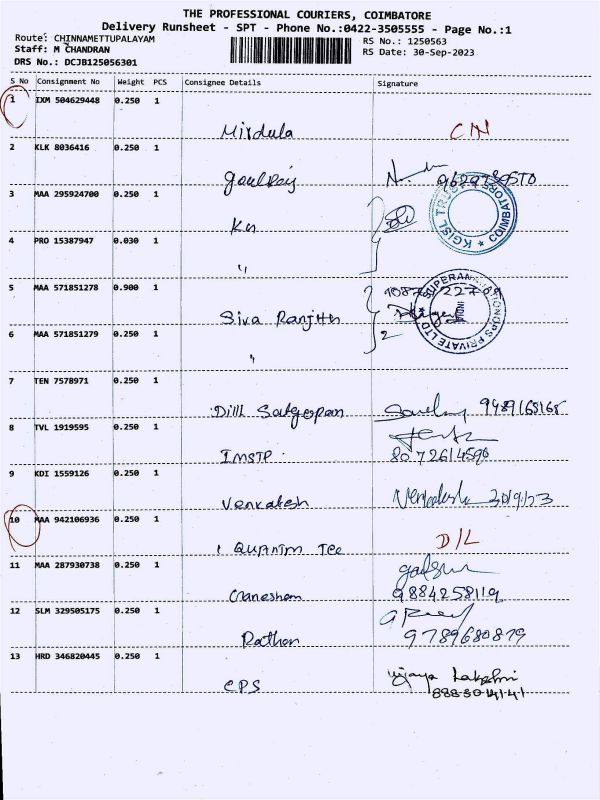 THE PROFESSIONAL COURIERS, COIMBATORE
Delivery Runsheet - SPT - Phone No.:0422-3505555 - Page No.:1
Route: CHINNAMETTUPALAYAM
RS No.: 1250563
Staff: M CHANDRAN
RS Date: 30-Sep-2023
DRS No.: DCJB125056301
S No Consignment No Weight PCS Consignee Details Signature
1 IXM 504629448 0.250 1
Mirdula
2 KLK 8036416 0.250 1
3 MAA 295924700 0.250 1
KGISL TRUST * COIMBATORE *
4 PRO 15387947 0.030 1
"
5 MAA 571851278 0.900 1
Siva Ranjith
6 MAA 571851279 0.250 1
"
2
7 TEN 7578971 0.250 1
9489168168
8 TVL 1919595 0.250 1
8072614590
9 KDI 1559126 0.250 1
Venkatesh Venkatesh 30/9/23
10 MAA 942106936 0.250 1
D/L
11 MAA 287930738 0.250 1
9884258119
12 SLM 329505175 0.250 1
Rathan 9789680879
13 HRD 346820445 0.250 1
CPS Vijaya Lakshmi